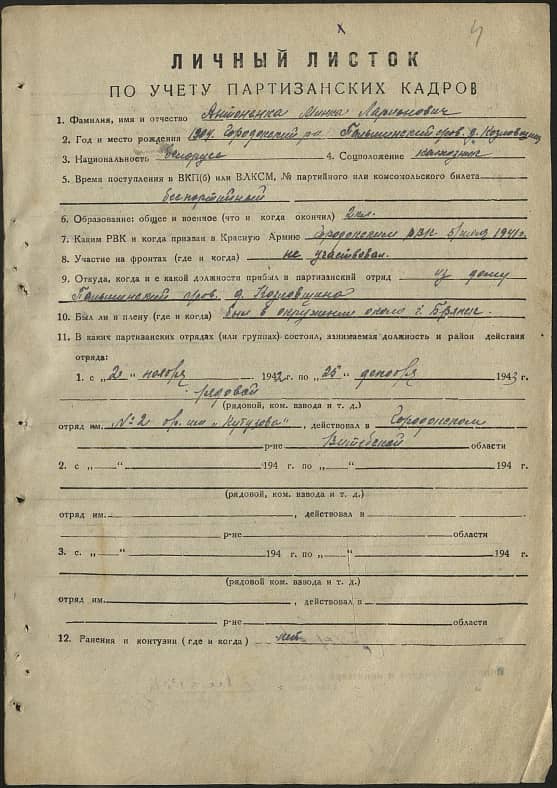 4
ЛИЧНЫЙ ЛИСТОК
ПО УЧЕТУ ПАРТИЗАНСКИХ КАДРОВ
1. Фамилия, имя и отчество Антоненка Минка Ларионович
2. Год и место рождения 1904. Городокский р-н д. Козловщина
3. Национальность белорусс 4. Соцположение колхозник
5. Время поступления в ВКП(б) или ВЛКСМ, № партийного или комсомольского билета
беспартийный
6. Образование: общее и военное (что и когда окончил) 2 кл.
7. Каким РВК и когда призван в Красную Армию Городокским РВК 5/июля 1941г.
8. Участие на фронтах (где и когда) не участвовал.
9. Откуда, когда и с какой должности прибыл в партизанский отряд из дому
д. Козловщина
10. Был ли в плену (где и когда) был в окружении около г. Брянск.
11. В каких партизанских отрядах (или группах) состоял, занимаемая должность и район действия
отряда:
1. с „2“ ноября 1942 г. по „25“ декабря 1943 г.
рядовой
(рядовой, ком. взвода и т. д.)
отряд им. №2 бр. им „Кутузова“, действовал в Городокском
р-не Витебской области
2. с „ “ 194 г. по „ “ 194 г.
(рядовой, ком. взвода и т. д.)
отряд им. , действовал в
р-не области
3. с. „ “ 194 г. по „ “ 194 г.
(рядовой, ком. взвода и т. д.)
отряд им. , действовал в
р-не области
12. Ранения и контузии (где и когда) нет